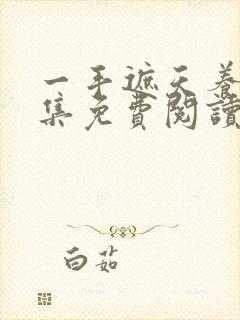 一手遮天養
集免費閱讀
白茹